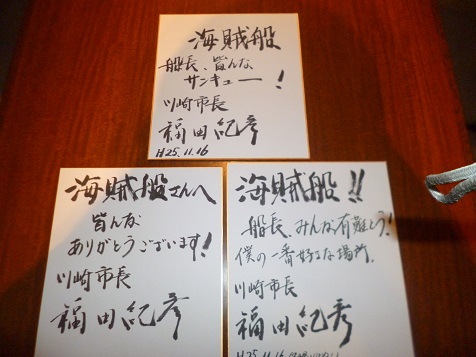 海賊船
船長、皆んな
サンキュー!
川崎市長
福田紀彦
H25.11.16
海賊船さんへ
皆んな
ありがとうございます!
川崎市長
福田紀彦
海賊船!!
船長、みんな有難とう!
僕の一番好きな場所.
川崎市長
福田紀彦
H25.11.16